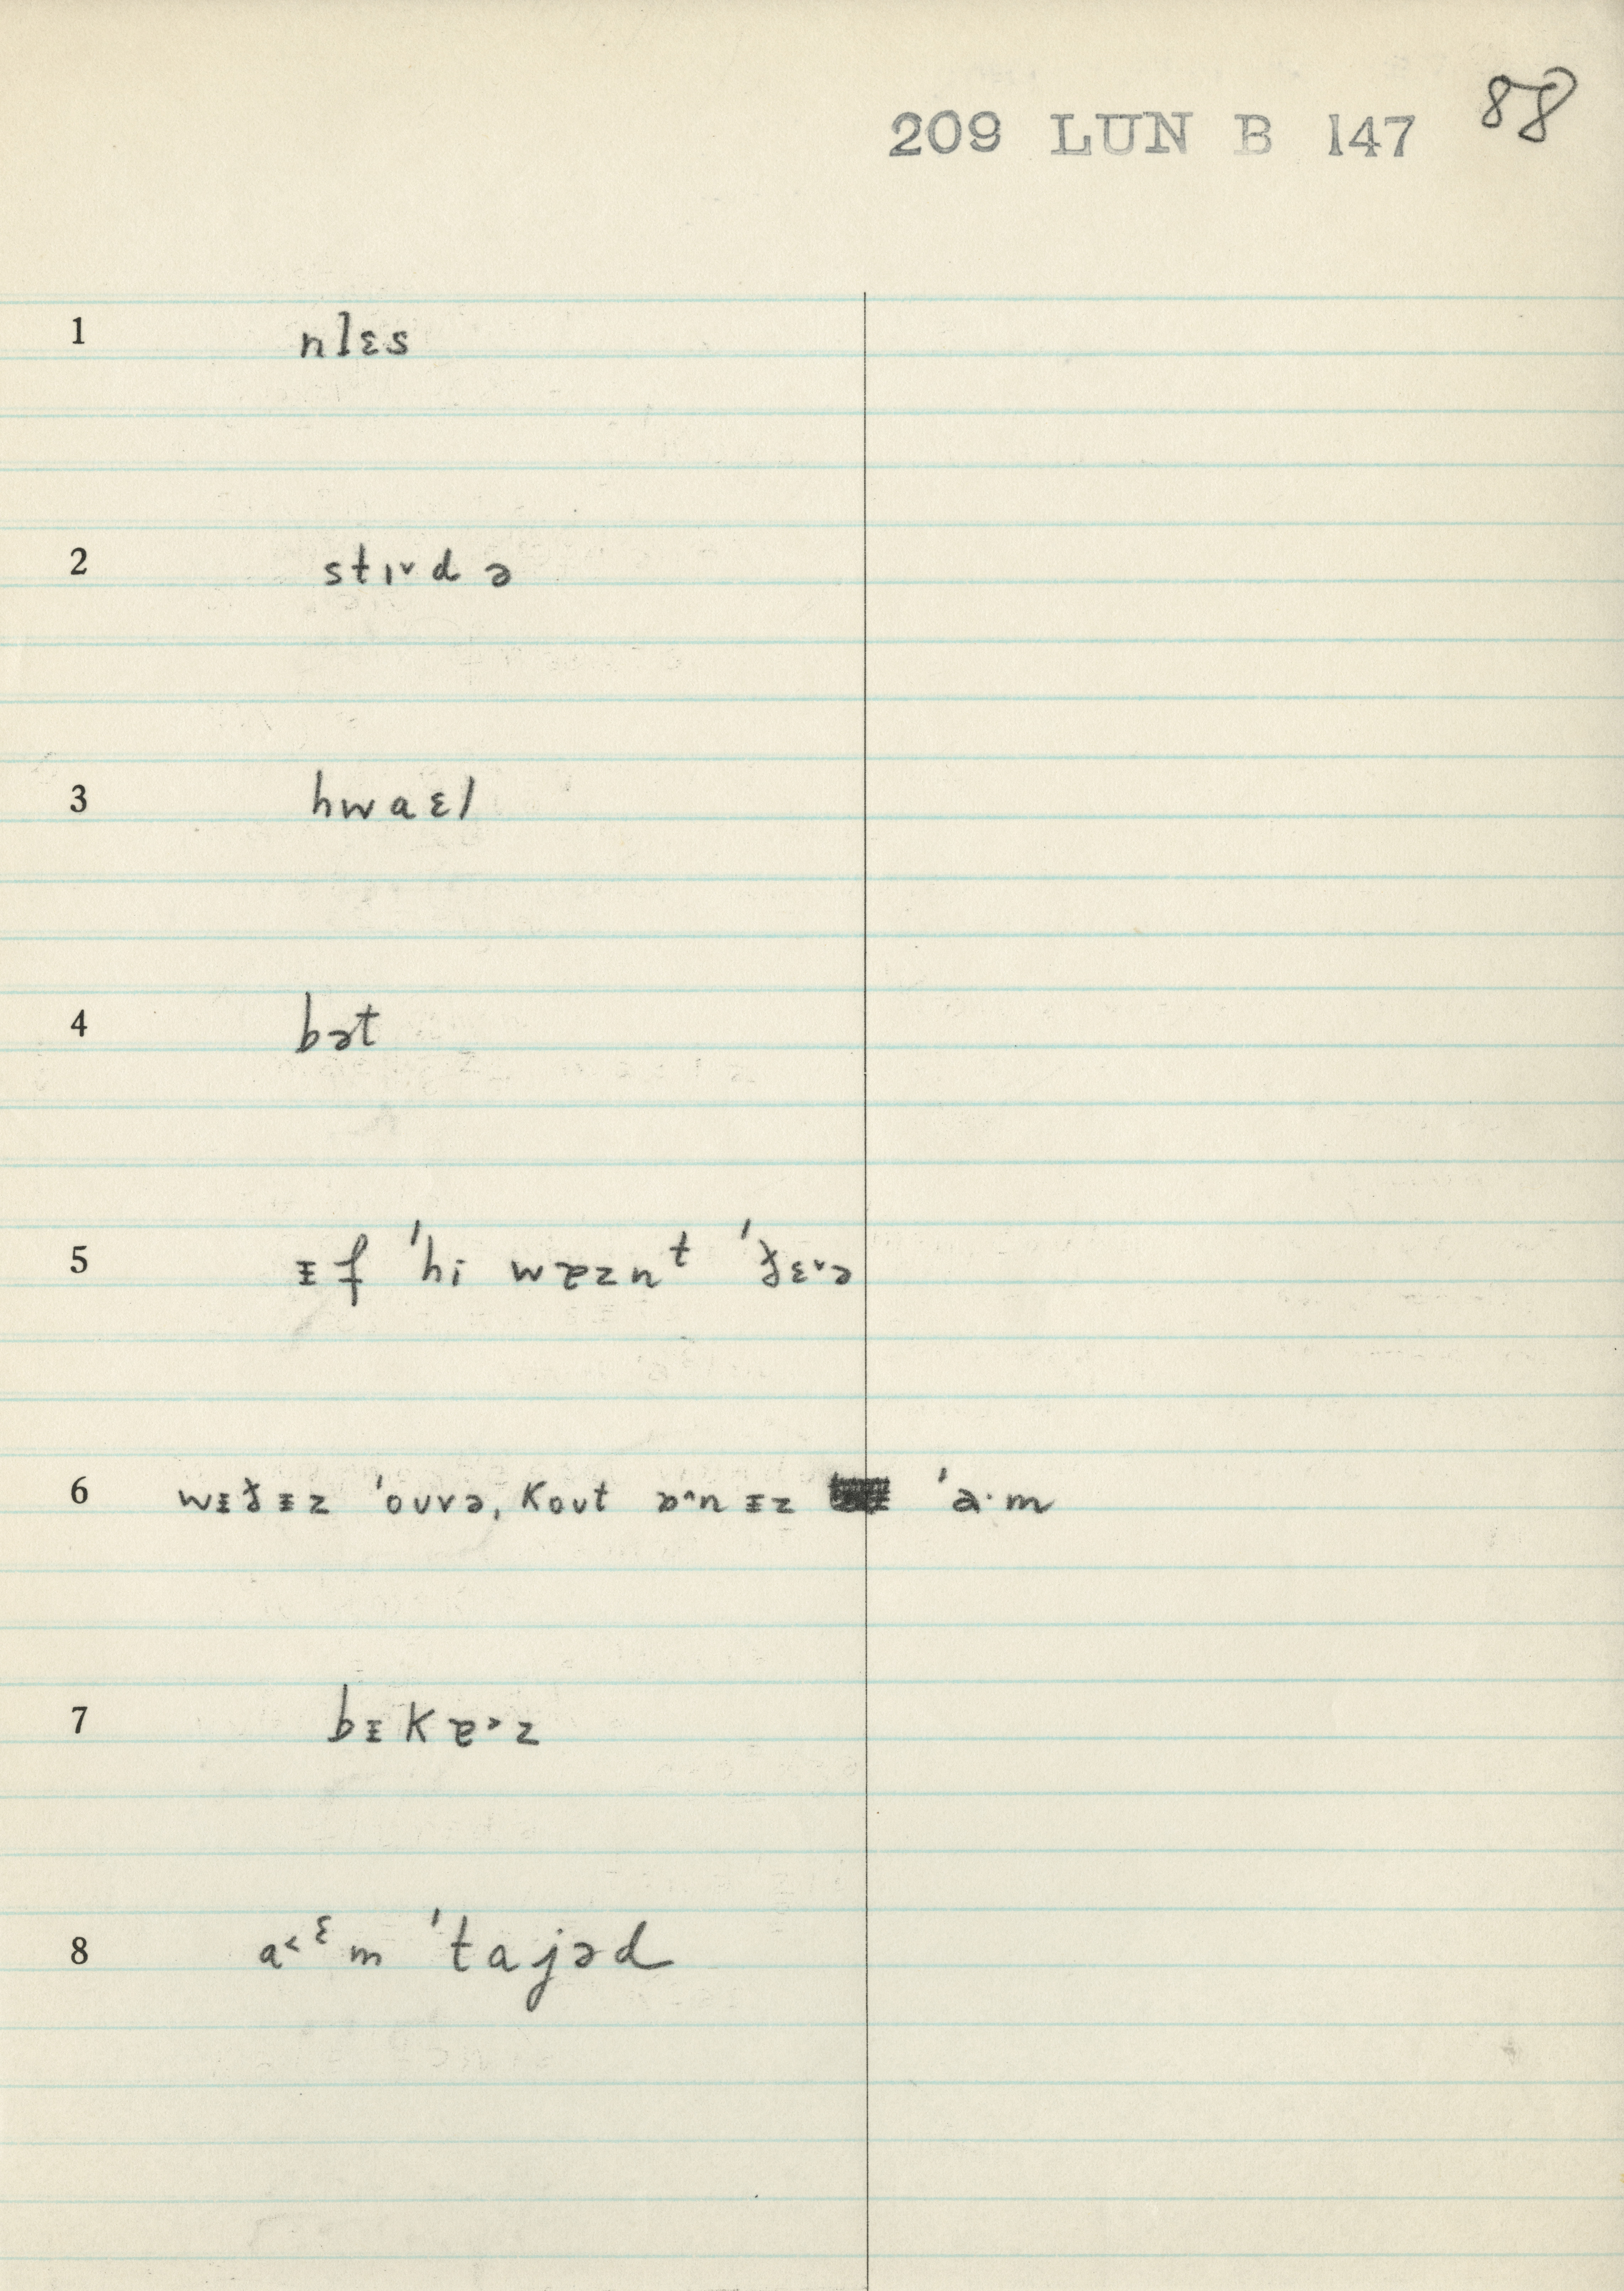 209 LUN B 147 88
1 nlɛs
2 stɪ˅d ə
3 hwaɛl
4 bət
5 ᵻf 'hi wɐznᵗ 'ðɛ˅ə
6 wᵻðᵻz 'oʊvə, koʊt ɒ^nᵻz 'a·m
7 bᵻkɐ˃z
8 a˂ᵋm 'tajəd